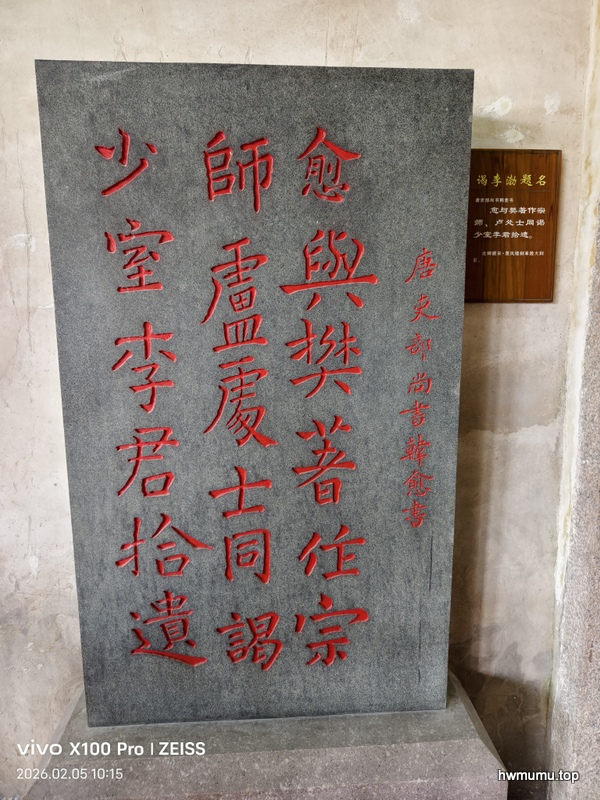 唐吏部尚書韓愈書
愈與樊著作宗
師盧處士同謁
少室李君拾遺
谒李渤题名
唐吏部尚书韩愈书
愈与樊著作宗
师、卢处士同谒
少室李君拾遗。
vivo X100 Pro | ZEISS
2026.02.05 10:15
hwmumu.top